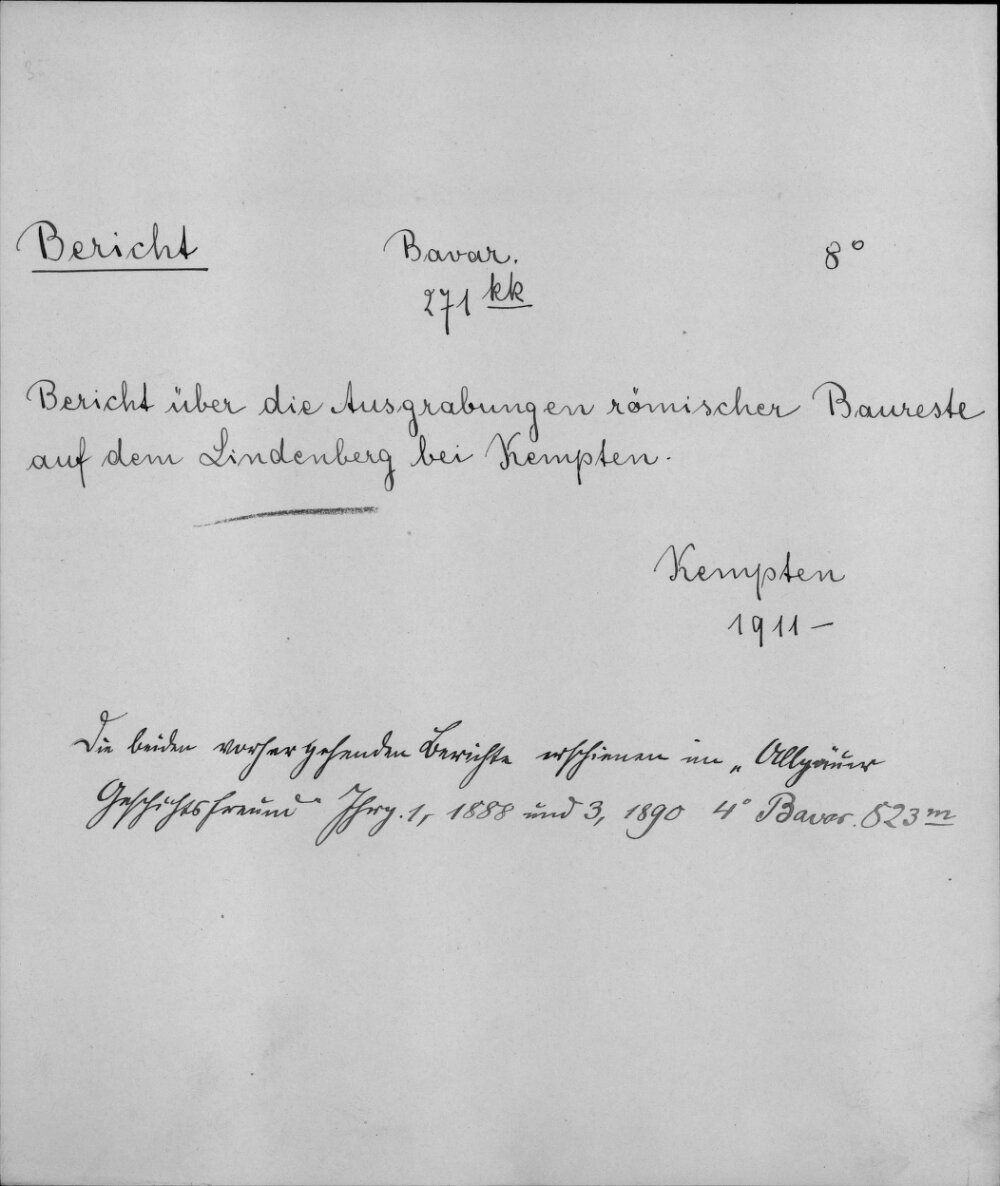 Bericht Bavar. 8°
271 kk
Bericht über die Ausgrabungen römischer Baureste
auf dem Lindenberg bei Kempten.
Kempten
1911 –
Die beiden vorhergehenden Berichte erschienen im „Allgäuer
Geschichtsfreund" Jhrg. 1, 1888 und 3, 1890 4° Bavar. 523 m